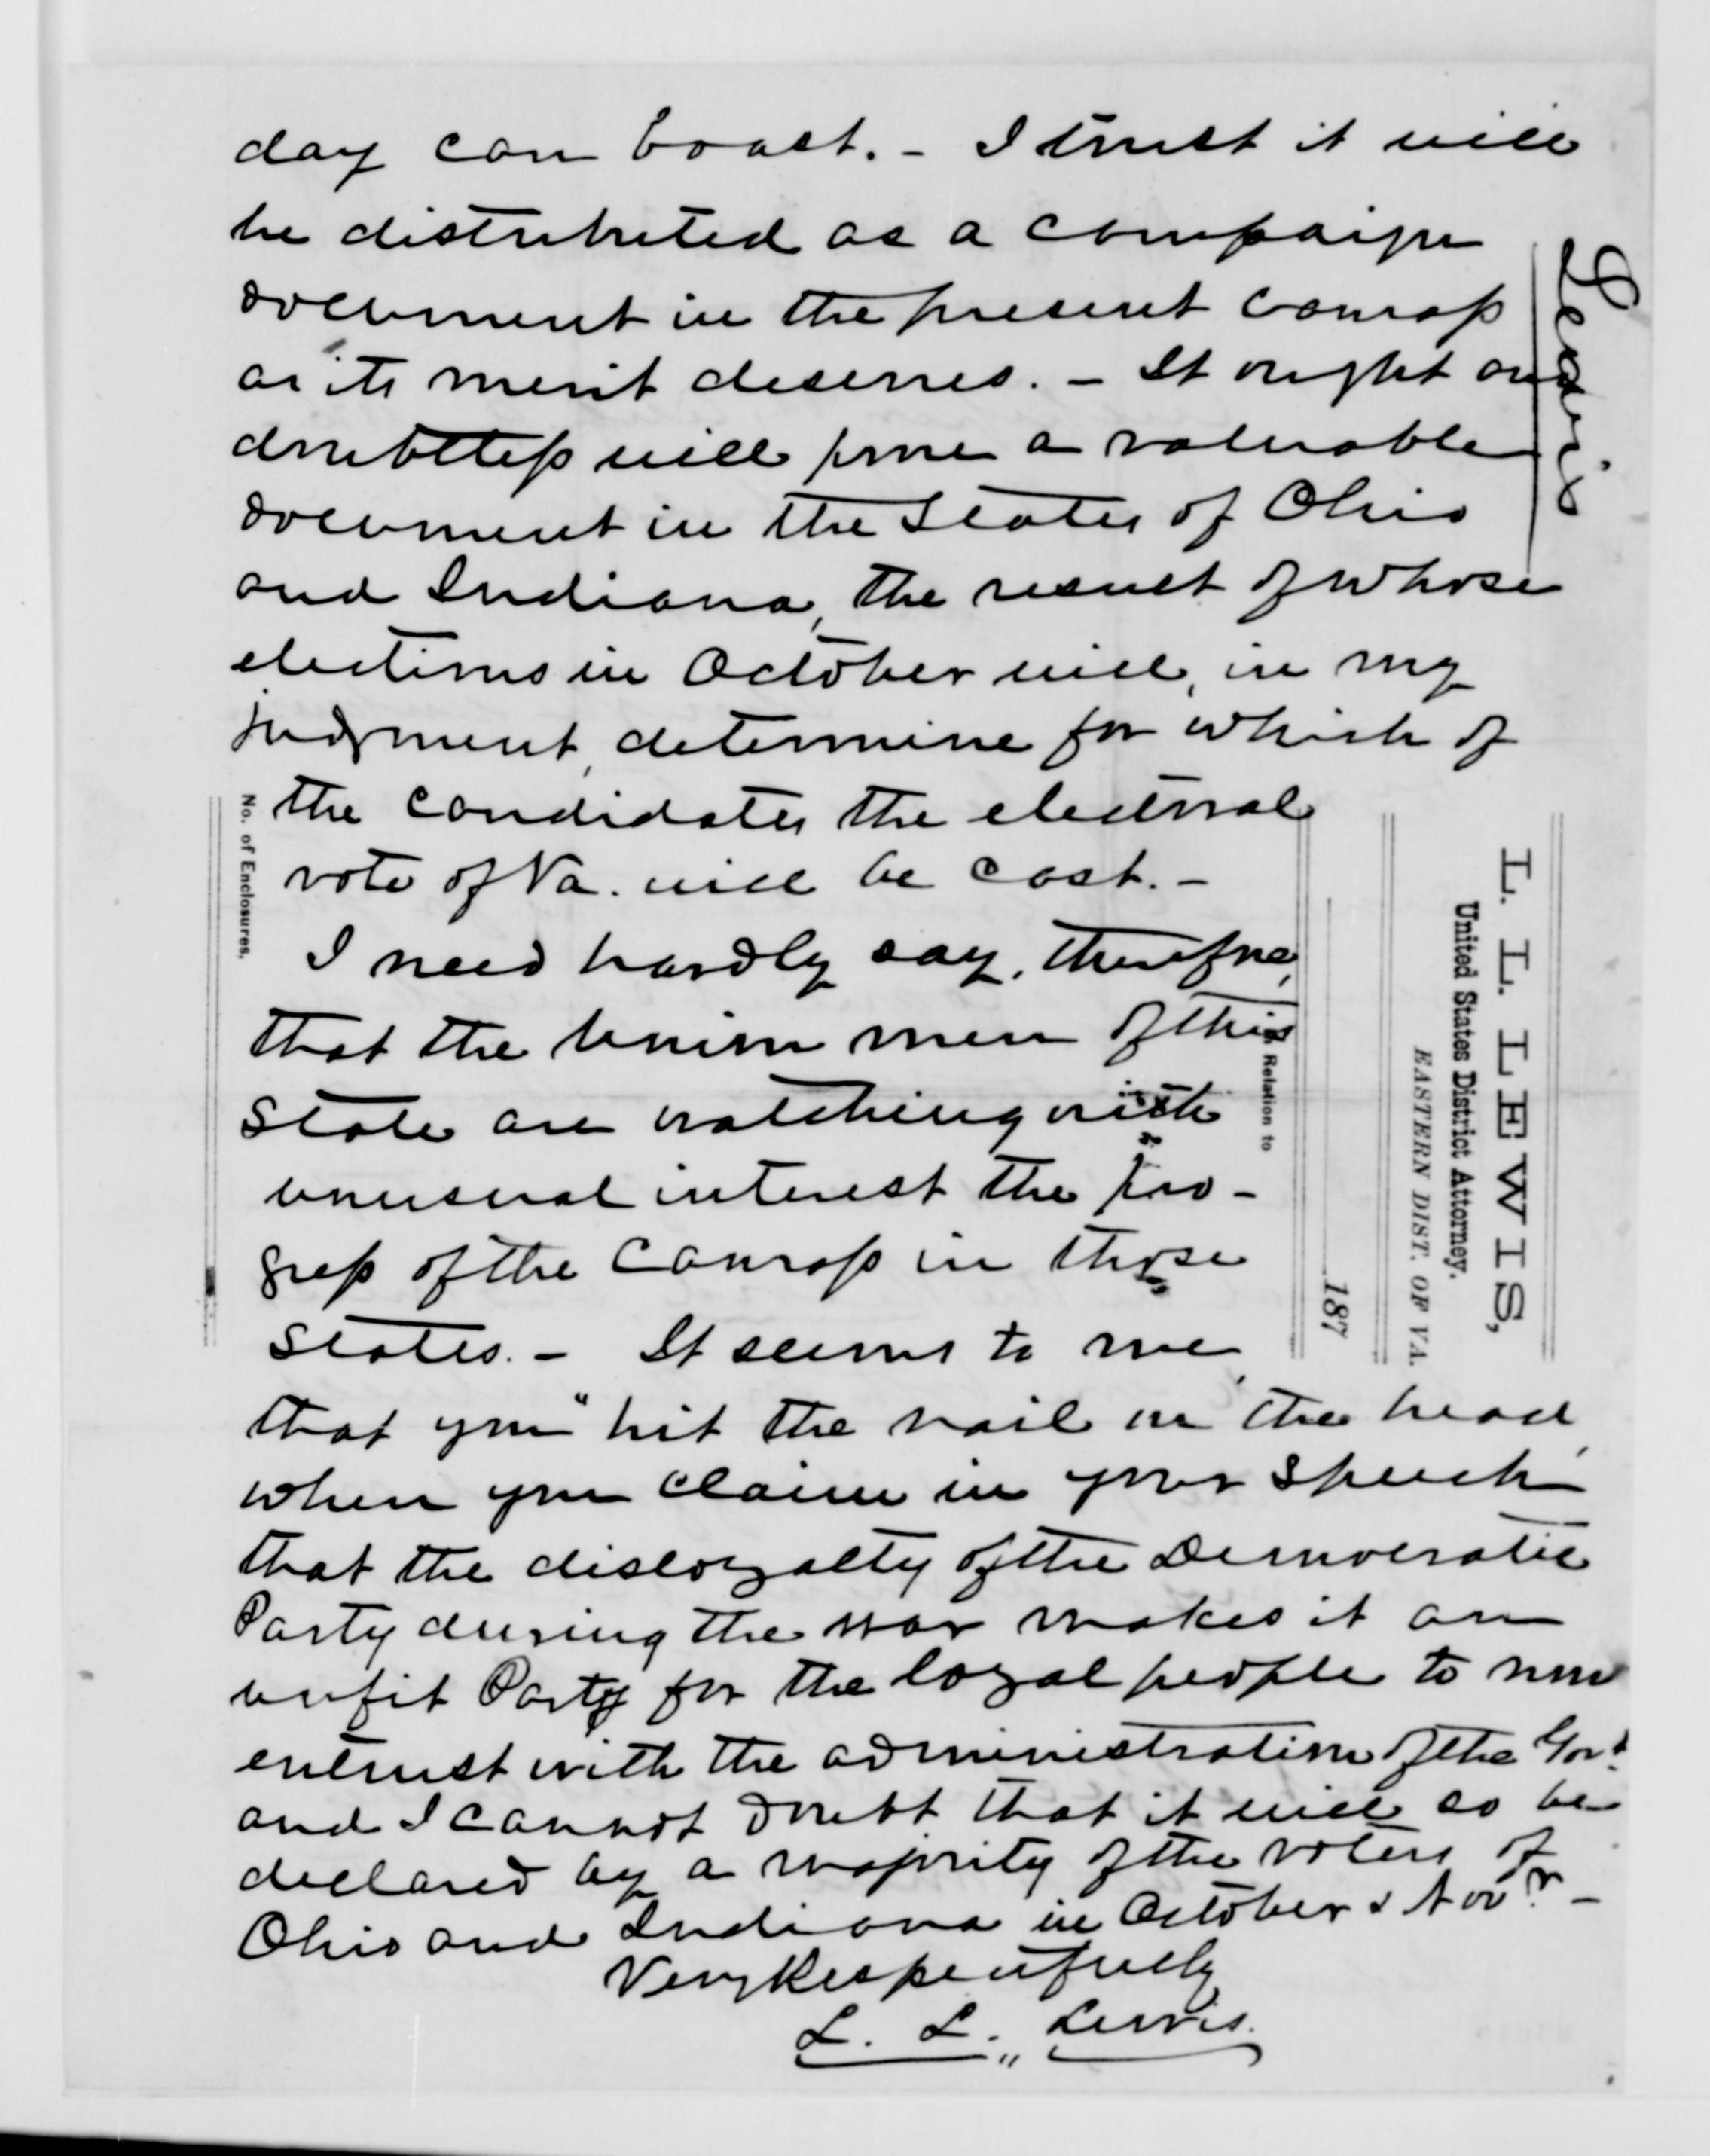 day can boast. - I trust it will
be distributed as a campaign
document in the present canvass
as its merit deserves. - It ought and
doubtless will prove a valuable
document in the States of Ohio
and Indiana, the result of whose
elections in October will, in my
judgment, determine for which of
the candidates the electoral
vote of Va. will be cast. -
I need hardly say, therefore,
that the Union men of this
State are watching with
unusual interest the pro-
gress of the canvass in those
States. - It seems to me,
that you "hit the nail on the head,
when you claim in your speech
that the disloyalty of the Democratic
Party during the war makes it an
unfit Party for the loyal people to now
entrust with the administration of the Govt.
and I cannot doubt that it will so be
declared by a majority of the voters of
Ohio and Indiana in October & Novr. -
Very Respectfully
L. L. Lewis.
Lewis
L. L. LEWIS,
United States District Attorney.
EASTERN DIST. OF VA.
187
Relation to
No. of Enclosures,